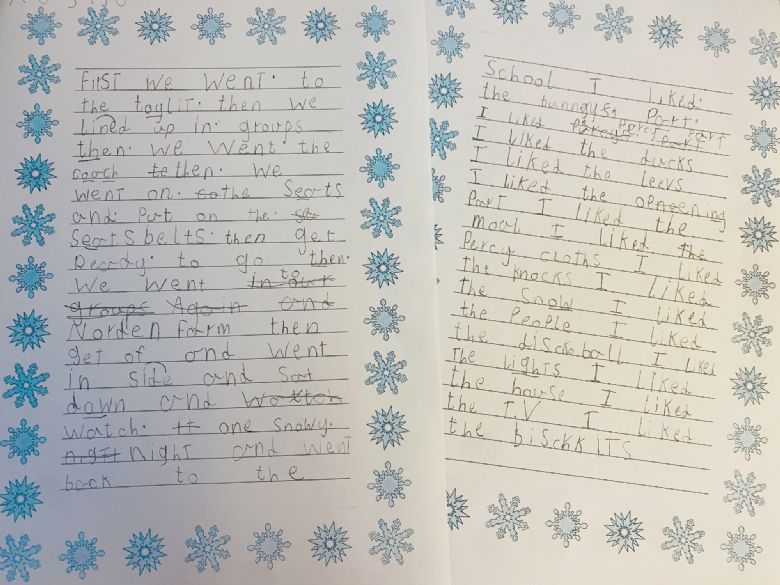 First we went. to
the toylit. then we
lined up in. groups
then. we went. the
coach to then. we
went on. co the Seats
and Put on the. Se
Seats belts. then get
Ready. to go then.
we went in to our
groups Again and
Norden farm then
get of and went
in side and Sat
down and
watch. it one Snowy.
night night and went
back to the
School I liked.
the Part.
I liked Percys Percy Part
I liked the ducks
I liked the leevs
I liked the opneening
Part I liked the
mool I liked the
Percy cloths I liked
the knocks I liked
the Snow I liked
the People I liked
the discko ball I liked
the lights I liked
the house I liked
the T.V I liked
the bisckkiTS